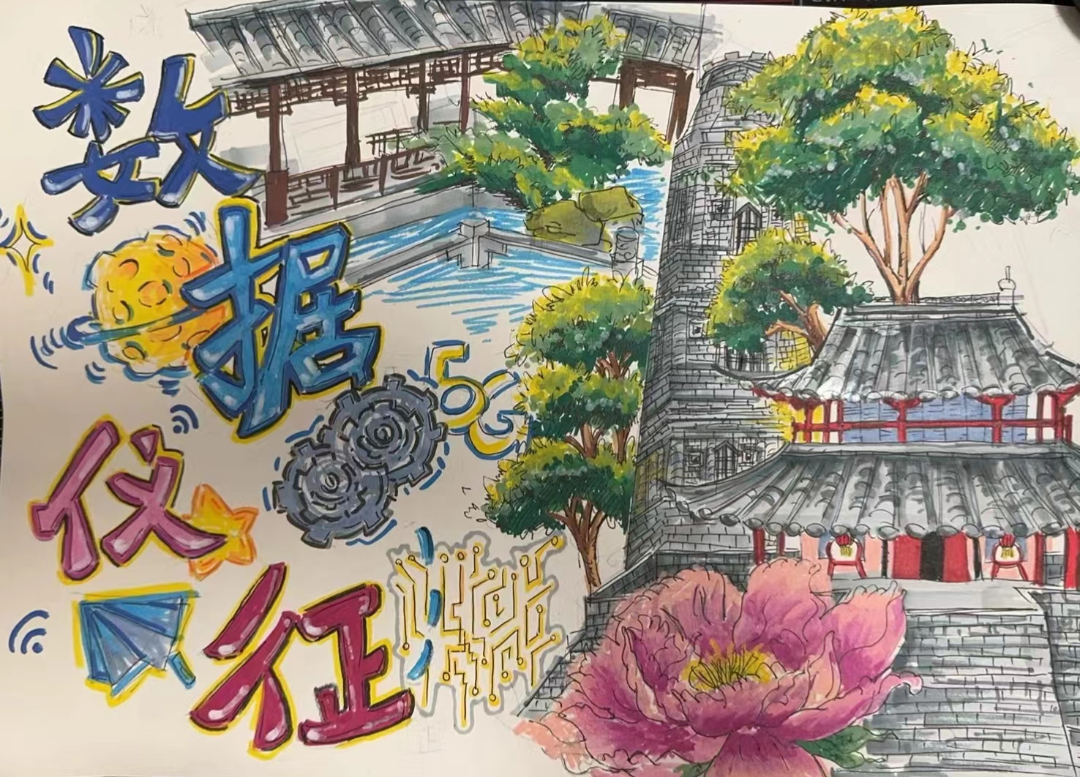 数
据
5G
仪
征